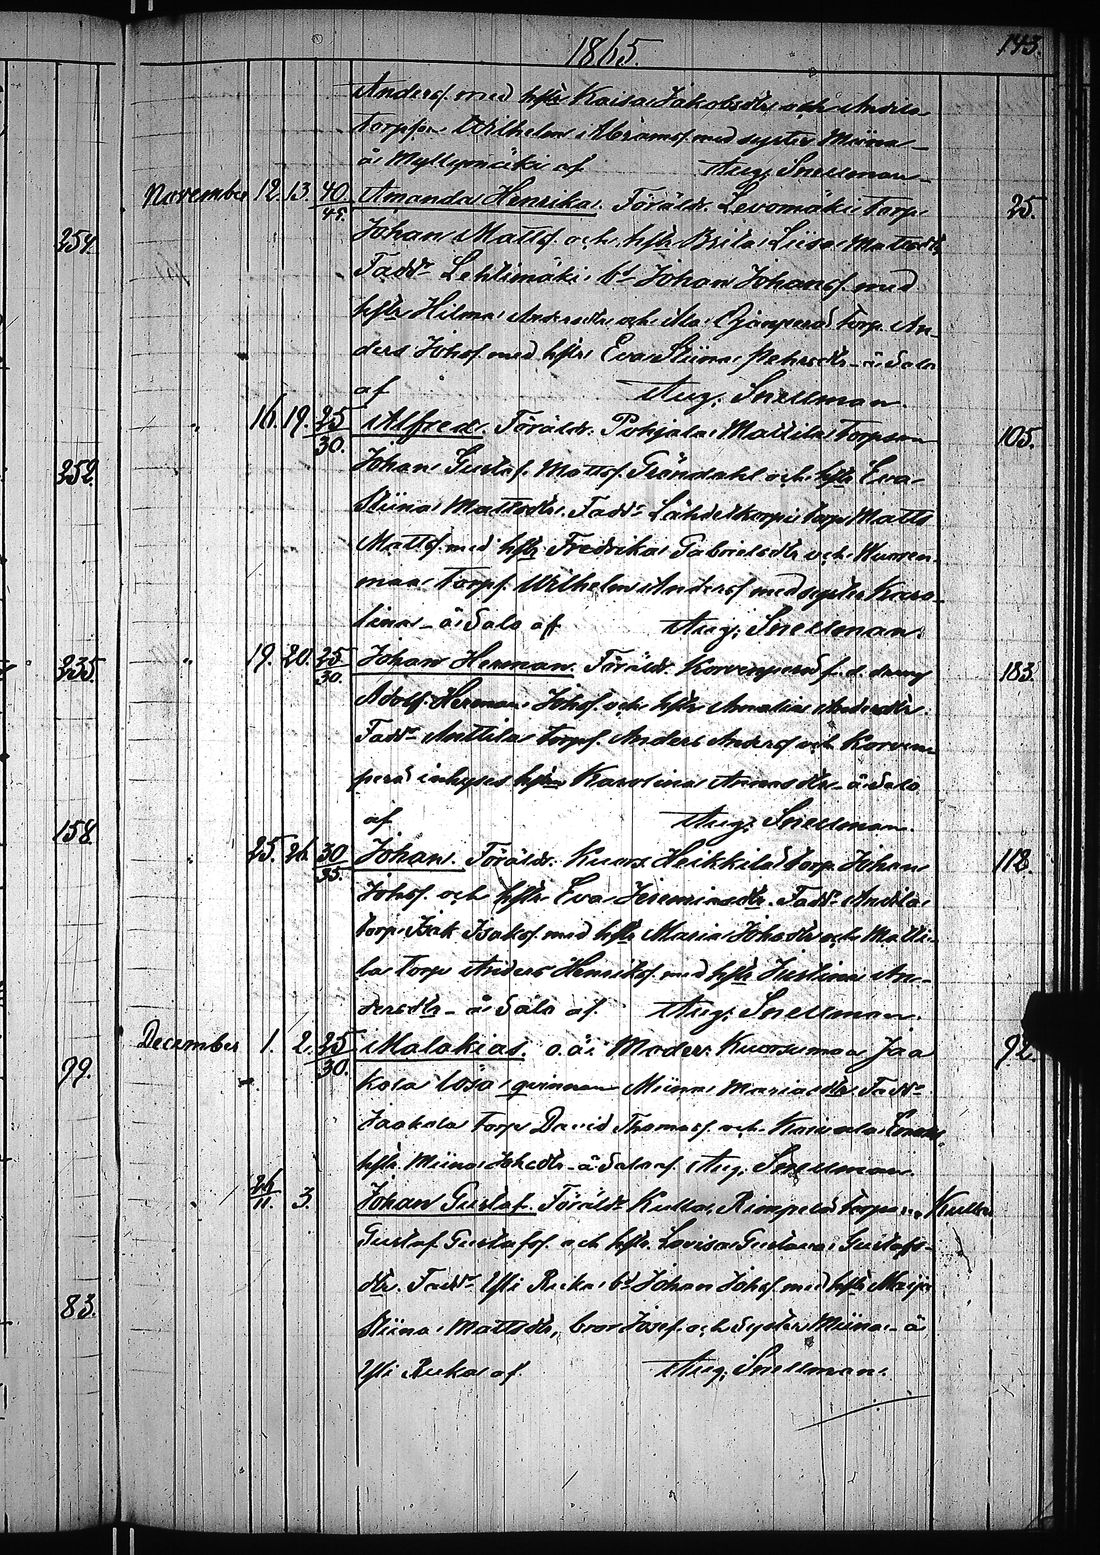 1865.
143.
Andersf. med hstr Kaisa Jakobsdtr och Andila
torppn Wilhelm Abramsf. med syster Miina
å Myllymäki af Aug. Snellman
November 12. 13. 40/45. Amanda Henrika. Föräldr. Levomäki torp. 25.
254. Johan Mattsf. och hstr Brita Liisa Mattsdtr
Fadd. Lehtimäki bd Johan Johansf. med
hstr Hilma Andersdtr och Ala Ojanperä torp. An-
ders Johsf. med hstr Eva Stiina Pehrsdtr å Salo
af Aug. Snellman.
" 16. 19. 25/30. Alfred. Föräldr. Pohjala Mattila torpson 105.
252. Johan Gustaf Mattsf. Gröndahl och hstr Eva
Stiina Mattsdtr. Fadd. Lähdekorpi torp Matts
Mattsf. med hstr Fredrika Gabrielsdtr och
maa torpf. Wilhelm Andersf. med syster Karo-
lina å Salo af Aug. Snellman.
235. " 19. 20. 25/30. Johan Herman. Föräldr. Korvenperä f. d. dräng 183.
Adolf Herman Johsf. och hstr Amalia Andersdtr.
Fadd. Anttila torpf. Anders Andersf och Korven
perä inhyses hstr Karolina Adamsdtr å Salo
158. af Aug. Snellman.
" 25. 26. 30/35. Johan. Föräldr. Kuors Heikkilä torp. Johan 112.
Johsf. och hstr Eva Jeremiasdtr. Fadd. Andila
torp. Isak Isaksf. med hstr Maria Johsdtr och Matti-
la torp Anders Henriksf. med hstr Justina An-
dersdtr å Salo af. Aug. Snellman.
December 1. 2. 25/30. Malakias. o.ä. Moder: Kuorsumaa Jaa 92.
99. kola lösa qvinnan Miina Mariasdtr Fadd.
Jaakola torp David Thomasf. och
hstr Miina Johsdtr å Salo af Aug. Snellman.
" 26/11. 3. Johan Gustaf. Föräldr. Kulla Rimpelä torpare Kulla
Gustaf Gustafsf. och hstr Lovisa Gustava Gustafs-
dtr. Fadd. Yli Rieka bd Johan Johsf. med hstr Maija
83. Stiina Mattsdtr, bror Josef och syster Miina å
Yli Rieka af Aug. Snellman.